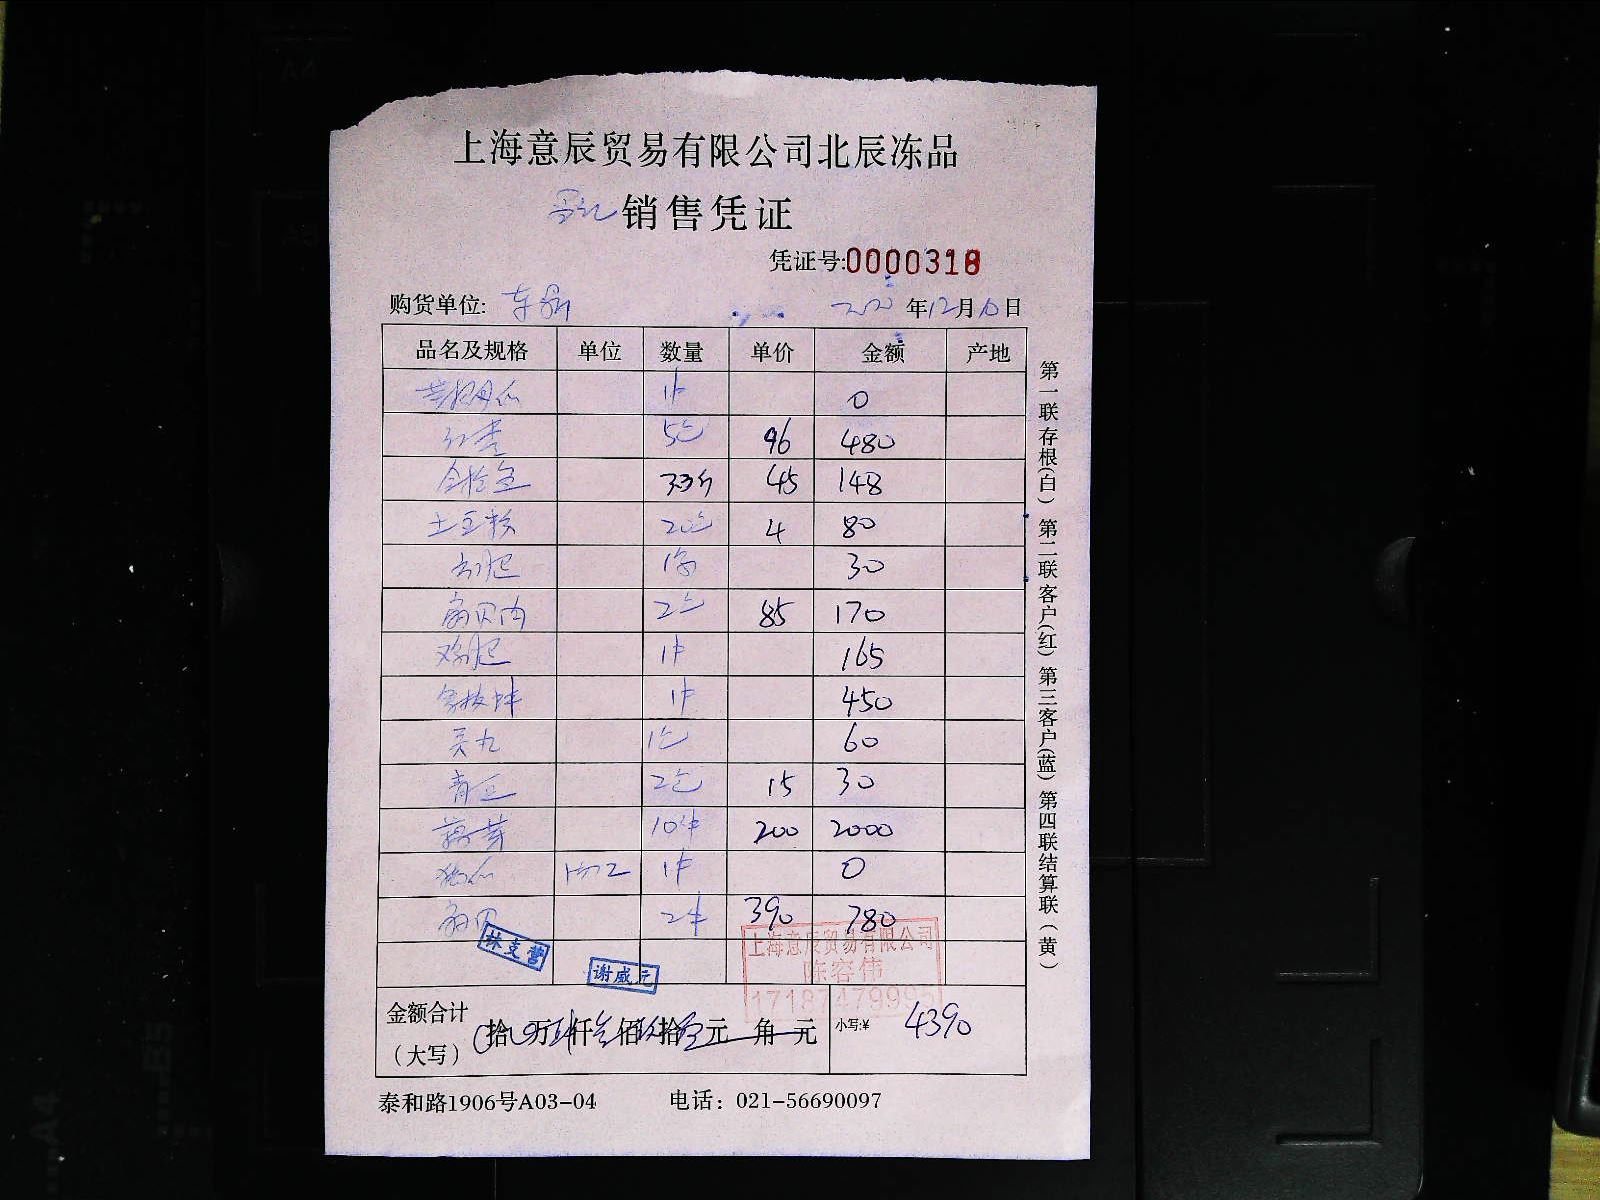 上海意辰贸易有限公司北辰冻品
销售凭证
凭证号:0000318
购货单位: 年12月10日
品名及规格 单位 数量 单价 金额 产地
1件 0
5包 96 480
33斤 45 148
土豆粉 20包 4 80
30
扇贝肉 2包 85 170
鸡肥 1件 165
1件 450
贡丸 1包 60
青豆 2包 15 30
10件 200 2000
1件 0
扇贝 2件 390 780
林支营
谢威元
上海意辰贸易有限公司
陈容伟
17187479995
金额合计
(大写) 拾 万 仟 佰 拾 元 角 元 小写:¥ 4390
泰和路1906号A03-04 电话：021-56690097
第一联存根(白) 第二联客户(红) 第三客户(蓝) 第四联结算联(黄)